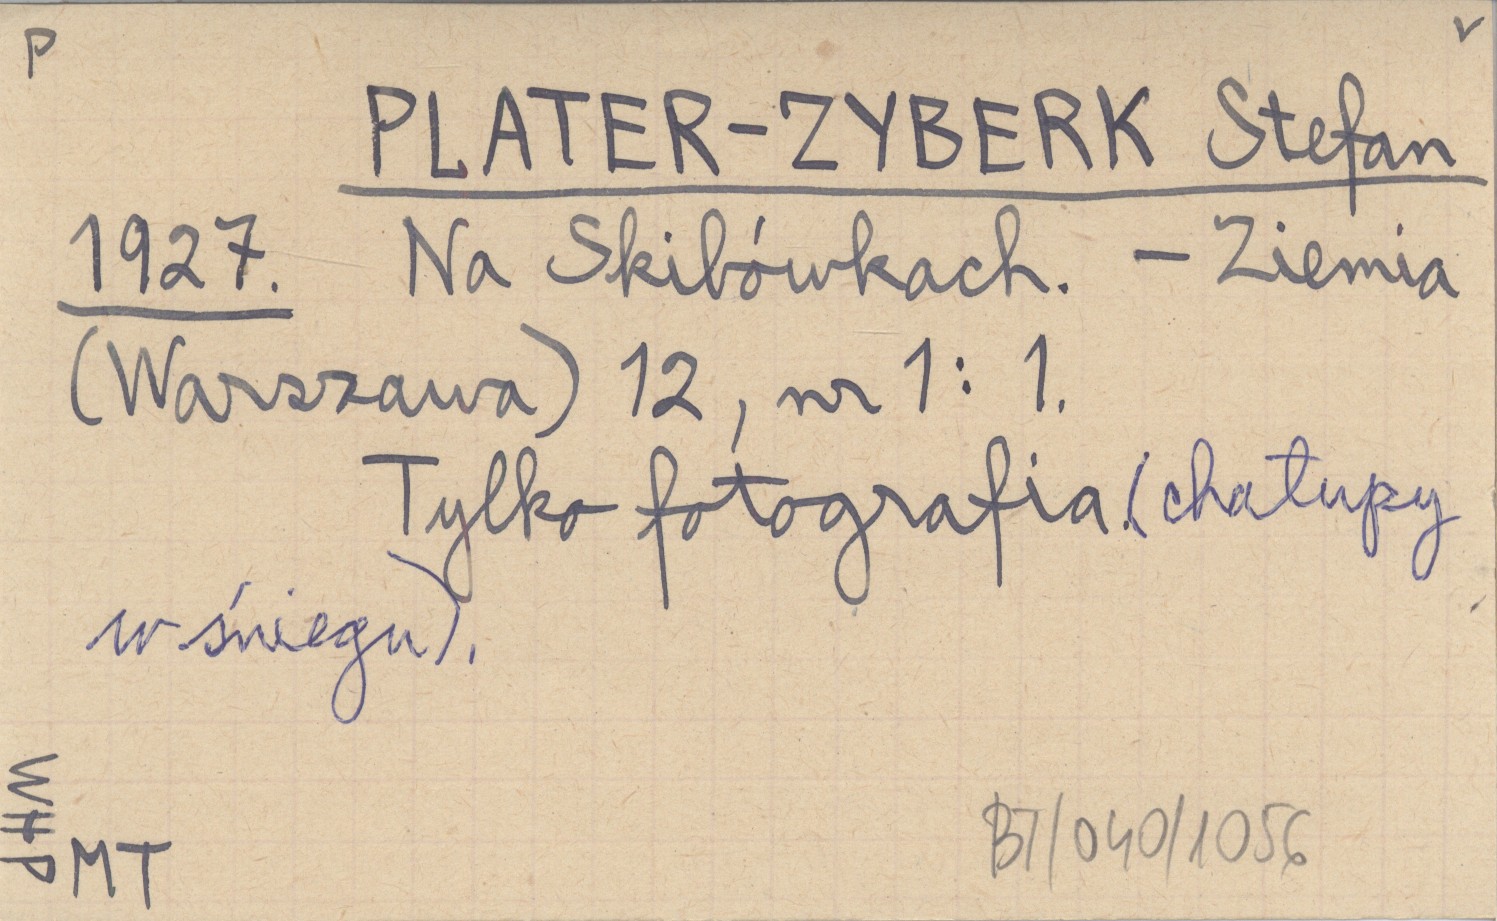 P v
PLATER-ZYBERK Stefan
1927. Na Skibówkach. - Ziemia
(Warszawa) 12, nr 1: 1.
Tylko fotografia. (chałupy
w śniegu).
WHP
MT
BT/040/1056